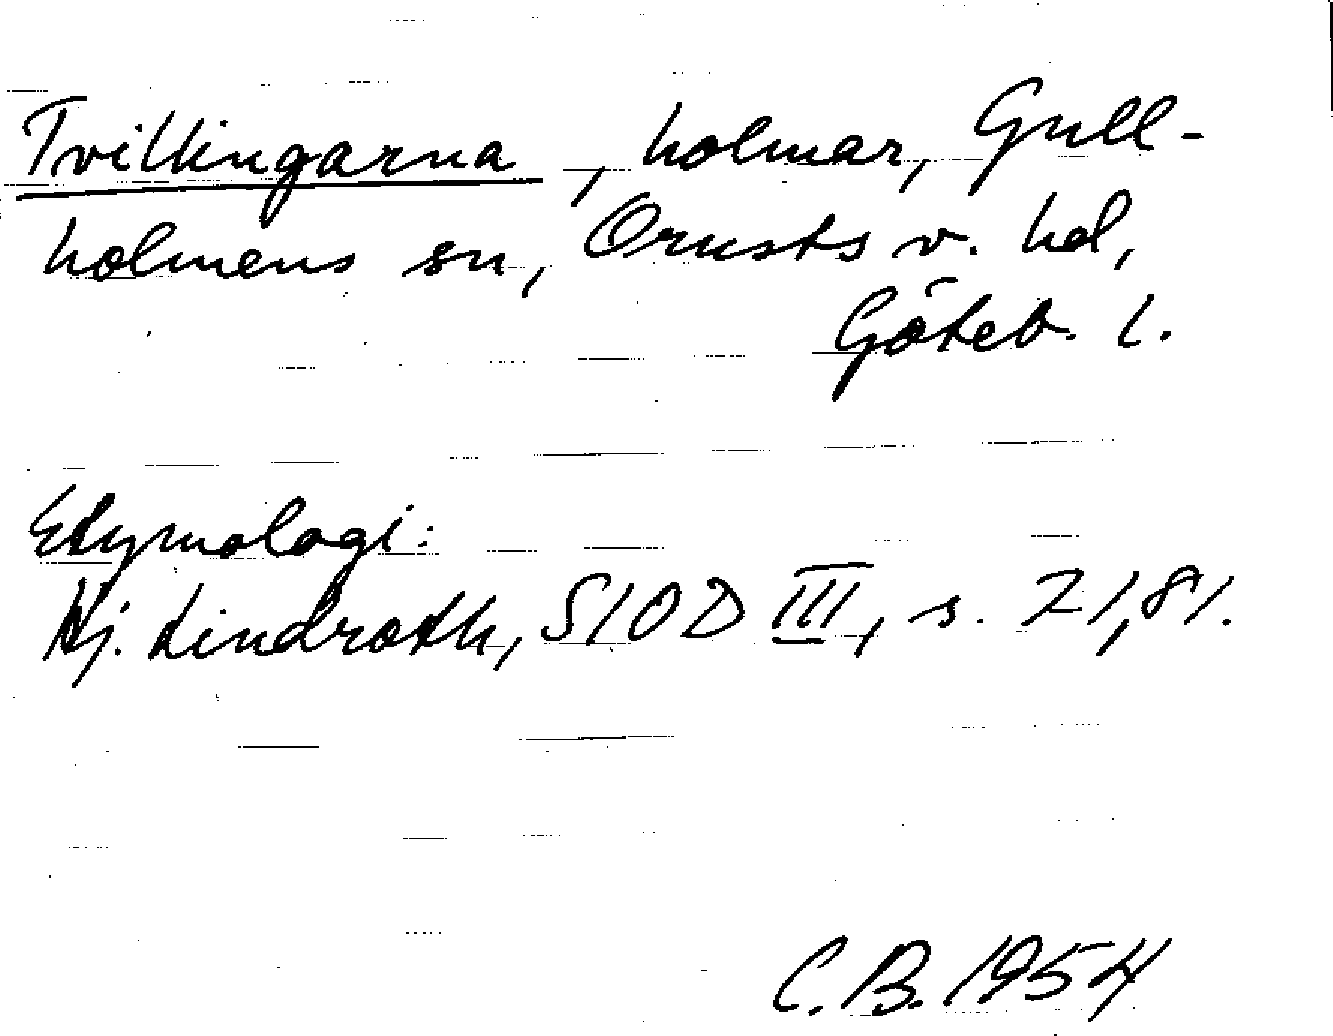 Tvillingarna, holmar, Gull-
holmens sn, Orusts v. hd,
Göteb. l.
Etymologi:
Hj. Lindroth, SIOD III, s. 71,81.
C.B. 1954